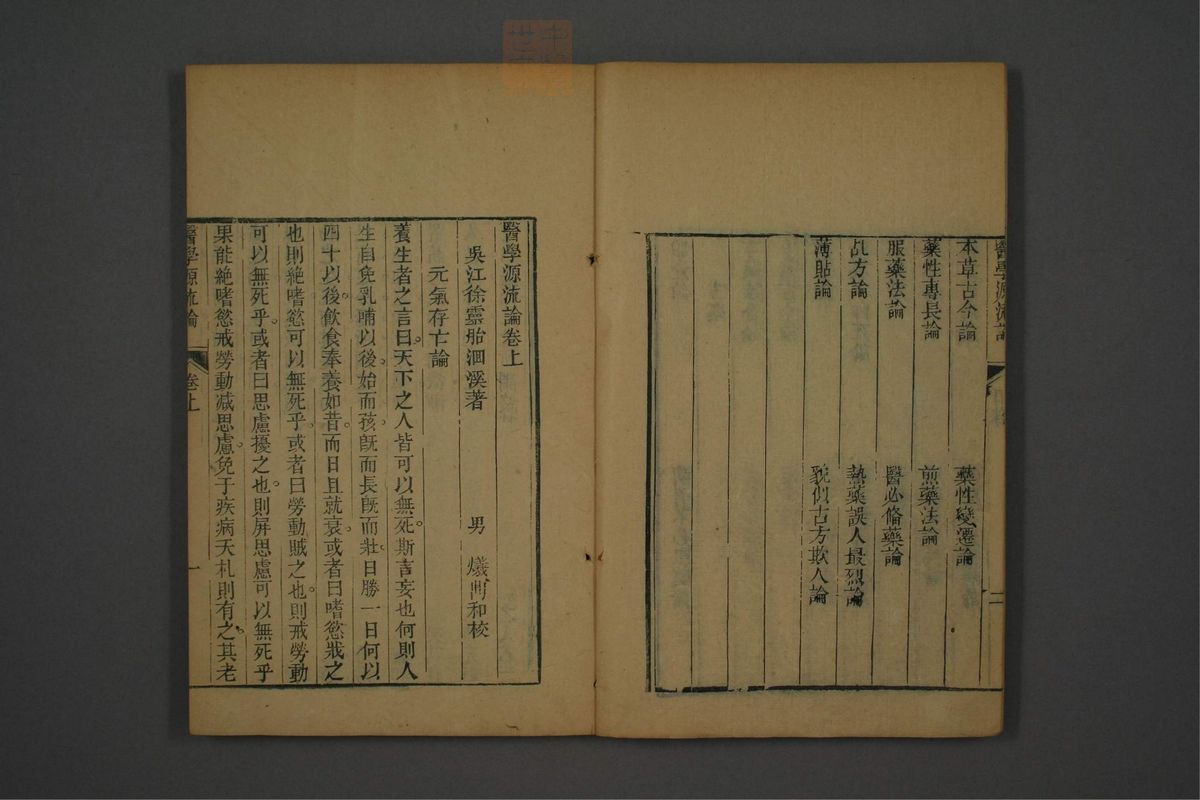 醫學源流論
二
本草古今論 藥性變遷論
藥性專長論 煎藥法論
服藥法論 醫必備藥論
乩方論 熱藥誤人最烈論
薄貼論 貌似古方欺人論
醫學源流論卷上
吳江徐靈胎洄溪著 男 爔鼎和校
元氣存亡論
養生者之言曰天下之人皆可以無死斯言妄也何則人
生自免乳哺以後始而孩旣而長旣而壯日勝一日何以
四十以後飲食奉養如昔而日且就衰或者曰嗜慾戕之
也則絶嗜慾可以無死乎或者曰勞動賊之也則戒勞動
可以無死乎或者曰思慮擾之也則屏思慮可以無死乎
果能絶嗜慾戒勞動減思慮免于疾病夭札則有之其老
醫學源流論
卷上
一